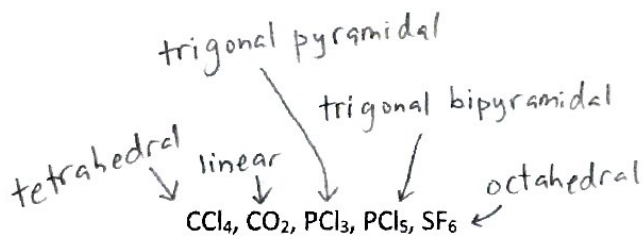 trigonal pyramidal
trigonal bipyramidal
tetrahedral
linear
octahedral
CCl₄, CO₂, PCl₃, PCl₅, SF₆